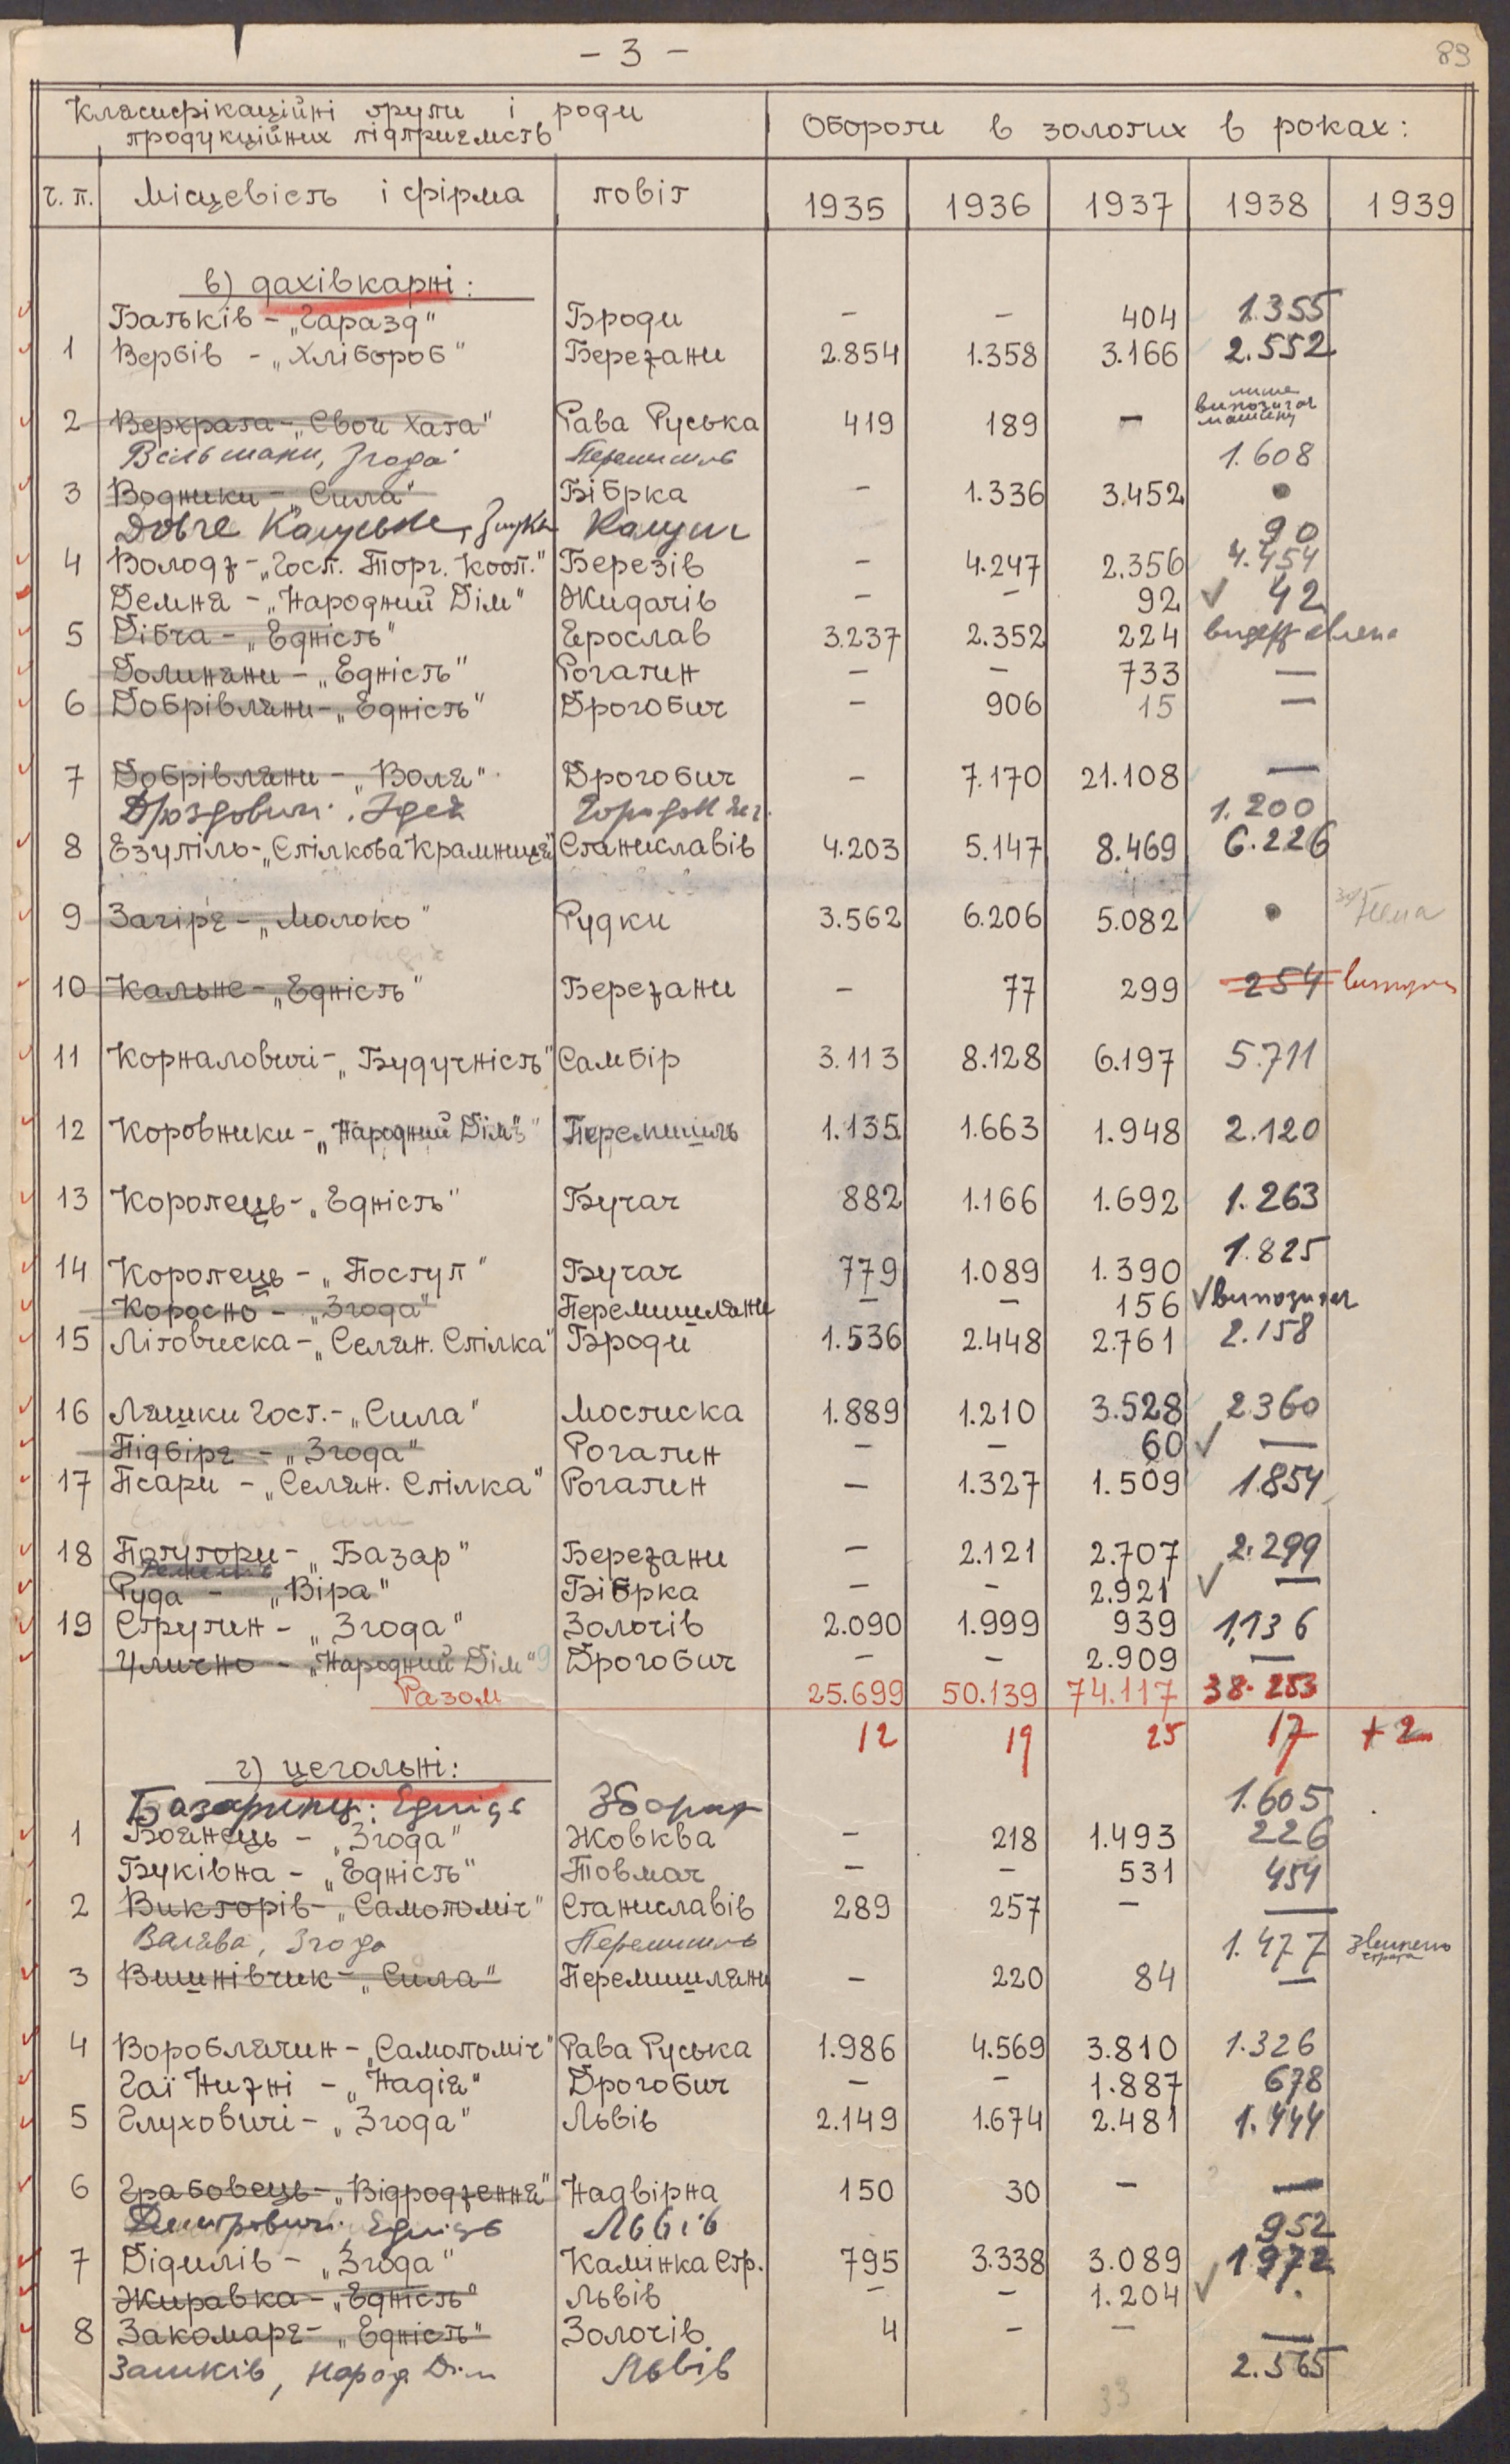 - 3 -
89
Клясифікаційні групи і роди
продукційних підприємств
Обороти в золотих в роках:
ч. п. Місцевість і фірма повіт 1935 1936 1937 1938 1939
в) дахівкарні:
Батьків - „Гаразд" Броди - - 404 1.355
1 Вербів - „Хлібороб" Бережани 2.854 1.358 3.166 2.552
лише
випозичає
машину
2 Верхрата - „Своя Хата" Рава Руська 419 189 -
Вільшани, Згода Перемишль 1.608
3 Водники - „Сила" Бібрка - 1.336 3.452 •
Довге Калуське, Злука Калуш 90
4 Володж - „Госп. Торг. Кооп." Березів - 4.247 2.356 4.454
Демня - „Народний Дім" Жидачів - - 92 ✓ 42
5 Дібча - „Єдність" Ярослав 3.237 2.352 224
Долиняни - „Єдність" Рогатин - - 733 —
6 Добрівляни - „Єдність" Дрогобич - 906 15 —
7 Добрівляни - „Воля" Дрогобич - 7.170 21.108 —
Дроздовичі. Ідея 1.200
8 Єзупіль - „Спілкова Крамниця" Станиславів 4.203 5.147 8.469 6.226
9 Загіря - „Молоко" Рудки 3.562 6.206 5.082 •
10 Кальне - „Єдність" Бережани - 77 299 254
11 Корналовичі - „Будучність" Самбір 3.113 8.128 6.197 5.711
12 Коровники - „Народний Дім" Перемишль 1.135 1.663 1.948 2.120
13 Коропець - „Єдність" Бучач 882 1.166 1.692 1.263
14 Коропець - „Поступ" Бучач 779 1.089 1.390 1.825
Коросно - „Згода" Перемишляни - - 156 ✓ випозичає
15 Літовиска - „Селян. Спілка" Броди 1.536 2.448 2.761 2.158
16 Ляшки Гост. - „Сила" Мостиска 1.889 1.210 3.528 2360
Підбіря - „Згода" Рогатин - - 60 ✓ —
17 Псари - „Селян. Спілка" Рогатин - 1.327 1.509 1.854
18 Потутори - „Базар" Бережани - 2.121 2.707 2.299
Руда - „Віра" Бібрка - - 2.921 ✓ —
19 Струтин - „Згода" Золочів 2.090 1.999 939 1,136
Улично - „Народний Дім" 9 Дрогобич - - 2.909 —
Разом 25.699 50.139 74.117 38.253
12 19 25 17 + 2
г) цегольні:
Базаринці: Єдність Збараж 1.605
1 Боянець - „Згода" Жовква - 218 1.493 226
Буківна - „Єдність" Товмач - - 531 454
2 Викторів - „Самопоміч" Станиславів 289 257 - —
Валява, Згода Перемишль 1.477
3 Вишнівчик - „Сила" Перемишляни - 220 84 —
4 Вороблячин - „Самопоміч" Рава Руська 1.986 4.569 3.810 1.326
Гаї Нижні - „Надія" Дрогобич - - 1.887 678
5 Глуховичі - „Згода" Львів 2.149 1.674 2.481 1.444
6 Грабовець - „Відродження" Надвірна 150 30 - —
Дмитровичі. Єдність Львів 952
7 Дідилів - „Згода" Камінка Стр. 795 3.338 3.089 1972
Жиравка - „Єдність" Львів - - 1.204 ✓ .
8 Закомаря - „Єдність" Золочів 4 - - —
Зашків, Народ Дім Львів 2.565
33